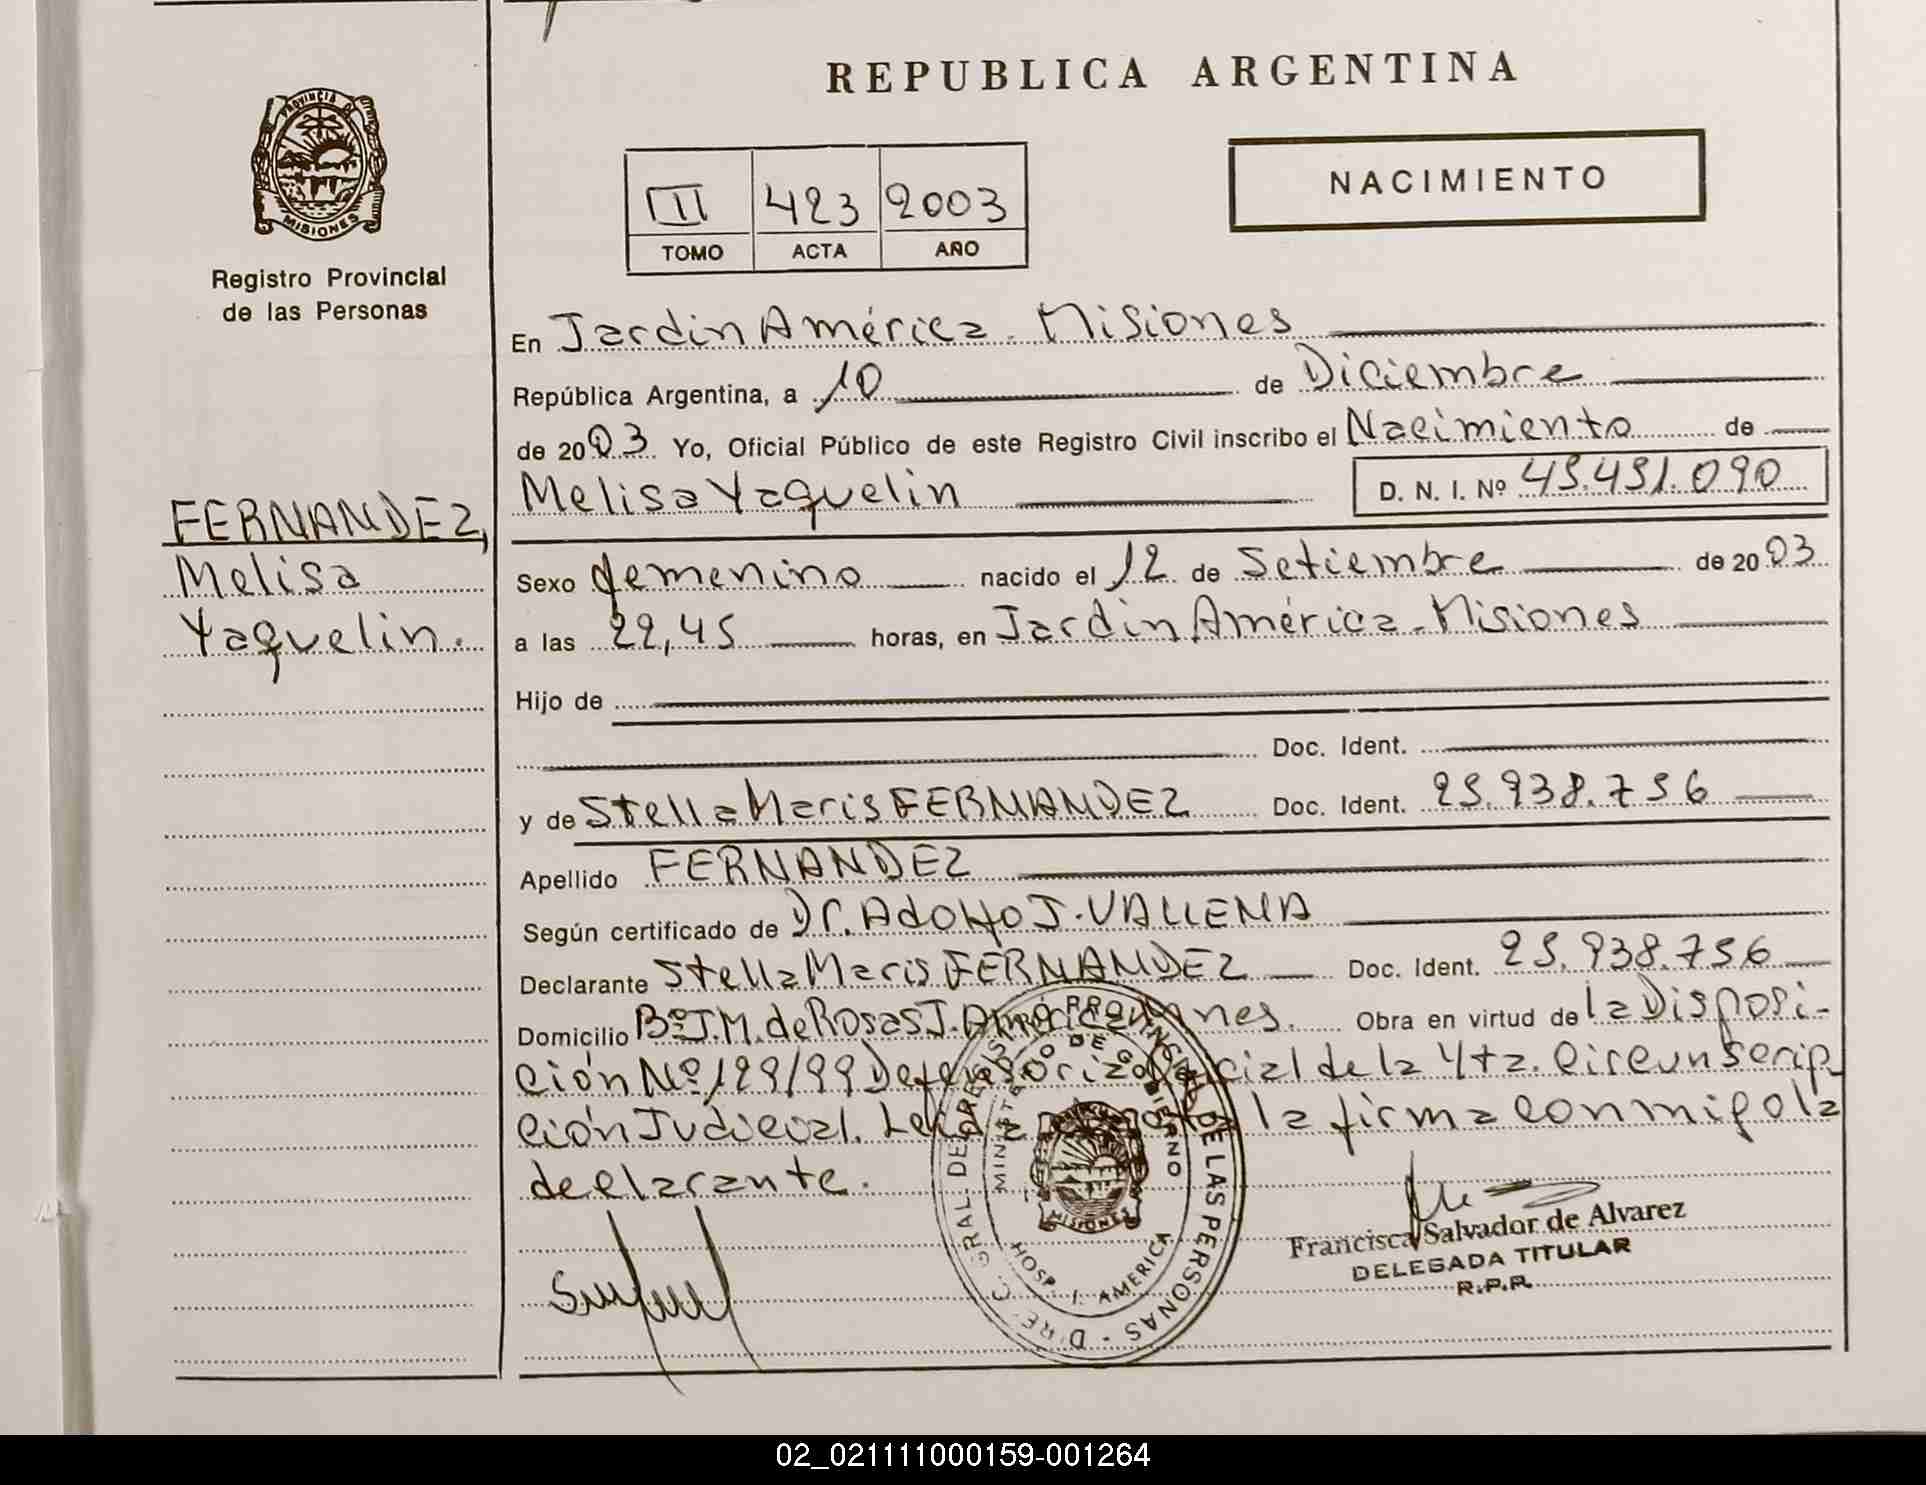 REPUBLICA ARGENTINA
PROVINCIA DE MISIONES
Registro Provincial
de las Personas
III 423 2003
TOMO ACTA AÑO
NACIMIENTO
En Jardin América - Misiones
República Argentina, a 10 de Diciembre
de 2003 Yo, Oficial Público de este Registro Civil inscribo el Nacimiento de
Melisa Yaquelin D. N. I. Nº 45.451.090
FERNANDEZ,
Melisa
Yaquelin.
Sexo femenino nacido el 12 de Setiembre de 2003
a las 22,45 horas, en Jardin América - Misiones
Hijo de
Doc. Ident.
y de Stella Maris FERNANDEZ Doc. Ident. 25.938.756
Apellido FERNANDEZ
Según certificado de Dr. Adolfo J. VALLENA
Declarante Stella Maris FERNANDEZ Doc. Ident. 25.938.756
Domicilio Bº J.M. de Rosas J. América Mnes. Obra en virtud de la Disposi-
ción Nº 129/99 Defensoría Oficial de la 4ta. Circunscrip-
ción Judicial. la firma conmigo la
declarante.
DIREC. GRAL DEL REGISTRO PROVINCIAL DE LAS PERSONAS
MINISTERIO DE GOBIERNO
HOSP. J. AMERICA
MISIONES
Francisca Salvador de Alvarez
DELEGADA TITULAR
R.P.P.
02_021111000159-001264